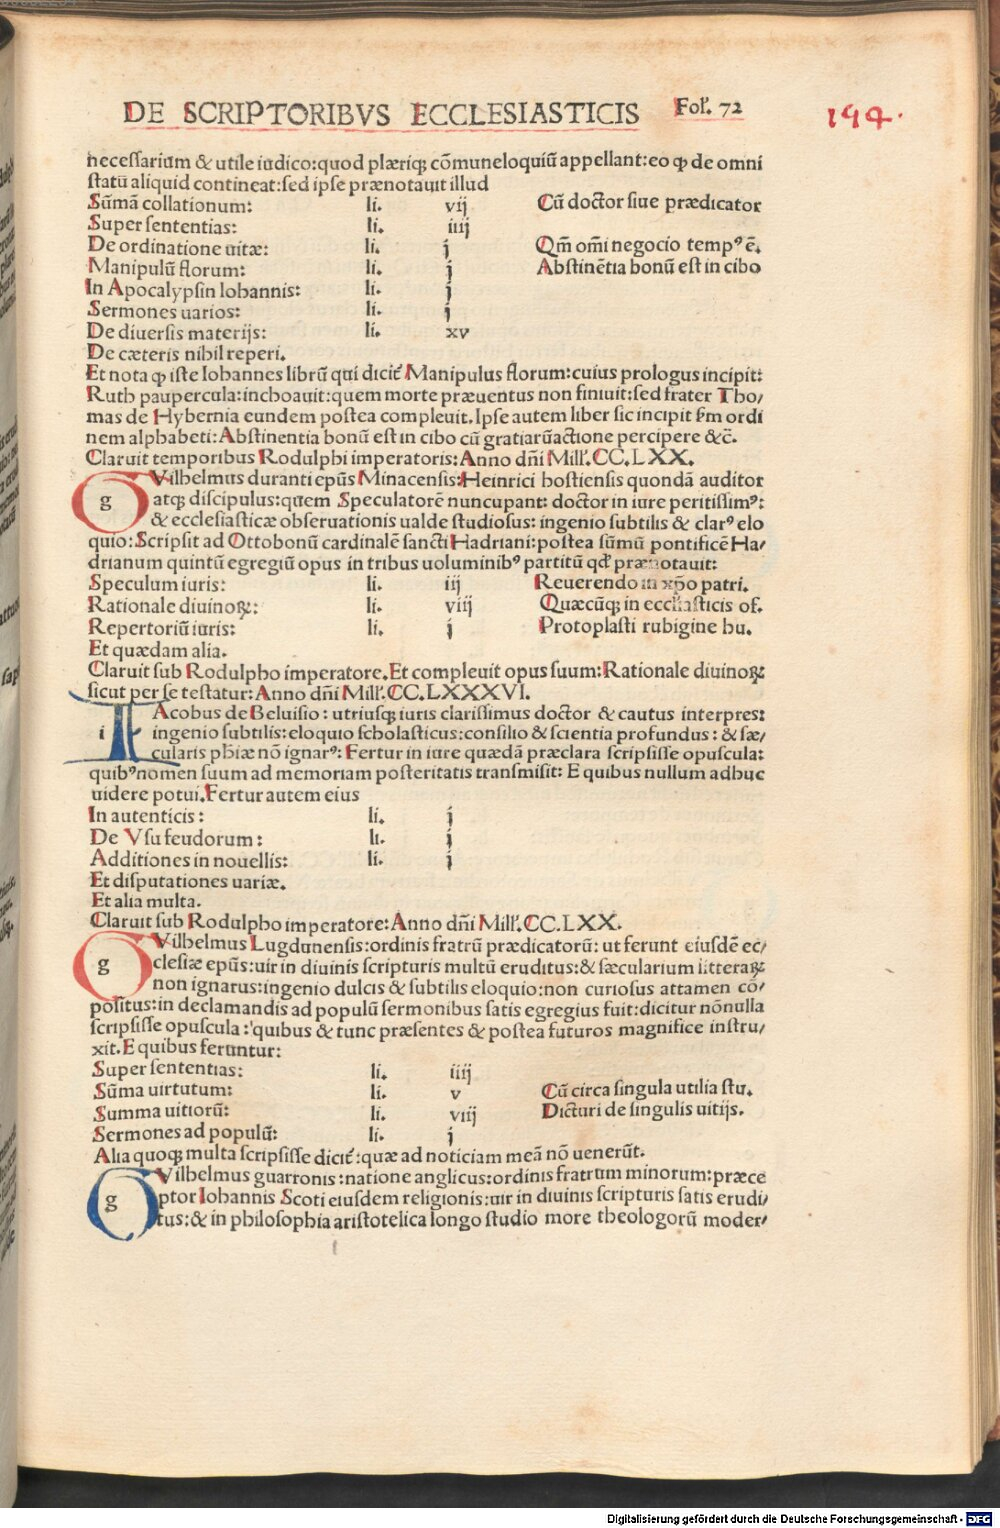 DE SCRIPTORIBVS ECCLESIASTICIS Fol. 72 194.
necessarium & utile iudico: quod plæriqꝫ cõmuneloquiũ appellant: eo ꝙ de omni
statu aliquid contineat: sed ipse prænotauit illud
Sũmã collationum: li. vij Cũ doctor siue prædicator
Super sententias: li. iiij
De ordinatione uitæ: li. j Qm̃ om̃i negocio tempꝰ ẽ.
Manipulũ florum: li. j Abstinẽtia bonũ est in cibo
In Apocalypsin Iohannis: li. j
Sermones uarios: li. j
De diuersis materijs: li. xv
De cæteris nihil reperi.
Et nota ꝙ iste Iohannes librũ qui dicit̃ Manipulus florum: cuius prologus incipit:
Ruth paupercula: inchoauit: quem morte præuentus non finiuit: sed frater Tho/
mas de Hybernia eundem postea compleuit. Ipse autem liber sic incipit s̃m ordi
nem alphabeti: Abstinentia bonũ est in cibo cũ gratiarũactione percipere &c̃.
Claruit temporibus Rodulphi imperatoris: Anno dñi Mill'. CC. LXX.
g Vilhelmus duranti ep̃us Minacensis: Heinrici hostiensis quondã auditor
atqꝫ discipulus: quem Speculatorẽ nuncupant: doctor in iure peritissimꝰ:
& ecclesiasticæ obseruationis ualde studiosus: ingenio subtilis & clarꝰ elo
quio: Scripsit ad Ottobonũ cardinalẽ sancti Hadriani: postea sũmũ pontificẽ Ha/
drianum quintũ egregiũ opus in tribus uoluminibꝰ partitũ qd' prænotauit:
Speculum iuris: li. iij Reuerendo in xp̃o patri.
Rationale diuinoꝝ: li. viij Quæcũqꝫ in eccl'iasticis of.
Repertoriũ iuris: li. j Protoplasti rubigine hu.
Et quædam alia.
Claruit sub Rodulpho imperatore. Et compleuit opus suum: Rationale diuinoꝝ
sicut per se testatur: Anno dñi Mill'. CC. LXXXVI.
i Acobus de Beluisio: utriusqꝫ iuris clarissimus doctor & cautus interpres:
ingenio subtilis: eloquio scholasticus: consilio & scientia profundus: & sæ/
cularis ph̃iæ nõ ignarꝰ: Fertur in iure quædã præclara scripsisse opuscula:
quibꝰ nomen suum ad memoriam posteritatis transmisit: E quibus nullum adhuc
uidere potui. Fertur autem eius
In autenticis: li. j
De Vsu feudorum: li. j
Additiones in nouellis: li. j
Et disputationes uariæ.
Et alia multa.
Claruit sub Rodulpho imperatore: Anno dñi Mill'. CC. LXX.
g Vilhelmus Lugdunensis: ordinis fratrũ prædicatorũ: ut ferunt eiusdẽ ec/
clesiæ ep̃us: uir in diuinis scripturis multũ eruditus: & sæcularium litteraꝝ
non ignarus: ingenio dulcis & subtilis eloquio: non curiosus attamen cõ/
positus: in declamandis ad populũ sermonibus satis egregius fuit: dicitur nõnulla
scripsisse opuscula: quibus & tunc præsentes & postea futuros magnifice instru/
xit. E quibus feruntur:
Super sententias: li. iiij
Sũma uirtutum: li. v Cũ circa singula utilia stu.
Summa uitiorũ: li. viij Dicturi de singulis uitijs.
Sermones ad populũ: li. j
Alia quoqꝫ multa scripsisse dicit̃: quæ ad noticiam meã nõ uenerũt.
g Vilhelmus guarronis: natione anglicus: ordinis fratrum minorum: præce
ptor Iohannis Scoti eiusdem religionis: uir in diuinis scripturis satis erudi/
tus: & in philosophia aristotelica longo studio more theologorũ moder/
Digitalisierung gefördert durch die Deutsche Forschungsgemeinschaft - DFG